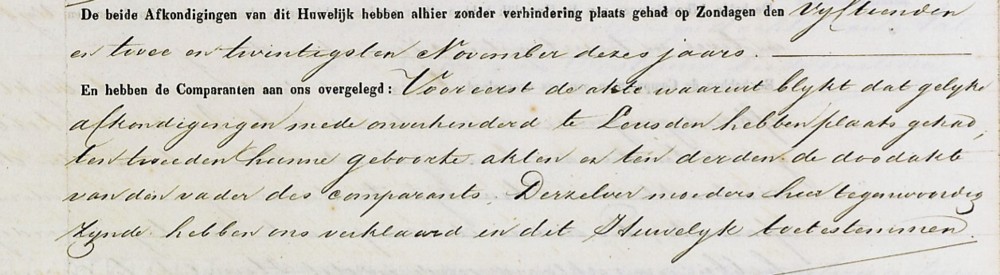 De beide Afkondigingen van dit Huwelijk hebben alhier zonder verhindering plaats gehad op Zondagen den Vyftienden
en twee en twintigsten November dezes jaars.
En hebben de Comparanten aan ons overgelegd: Vooreerst de akte waaruit blykt dat gelyke
afkondigingen mede onverhinderd te Leusden hebben plaats gehad,
ten tweeden hunne geboorte akten en ten derden de doodakte
van den vader des comparants. Derzelver moeders hier tegenwoordig
zynde hebben ons verklaard in dit Huwelyk toetestemmen.